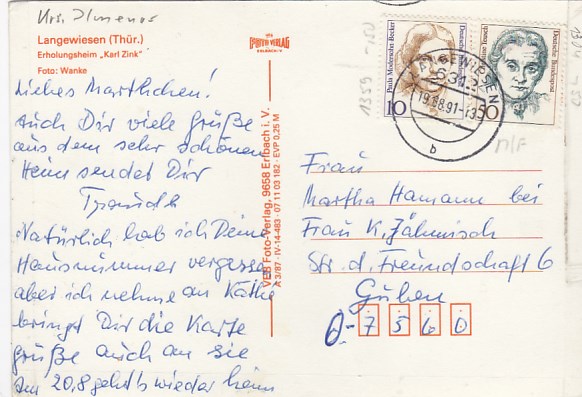 Krs. Ilmenau
Langewiesen (Thür.)
Erholungsheim „Karl Zink"
Foto: Wanke
VERLAG
Liebes Marthchen!
Auch Dir viele Grüße
aus dem sehr schönen
Heim sendet Dir
Traudl
Natürlich hab ich Deine
Hausnummer vergessen
aber ich nehme an Käthe
bringt Dir die Karte
grüße auch an sie
am 20.8 geht's wieder heim
VEB Foto-Verlag, 9658 Erlbach i. V.
A 3/87 · IV-14-483 · 07 11 03 182 · EVP 0,25 M
1359
-150
Paula Modersohn-Becker
Deutsche Bundespost
10
50
LANGEWIESEN
631
19.-8.91-13
b
Frau
Martha Hamann bei
Frau K. Zähmisch
Str. d. Freundschaft 6
Guben
O-7560